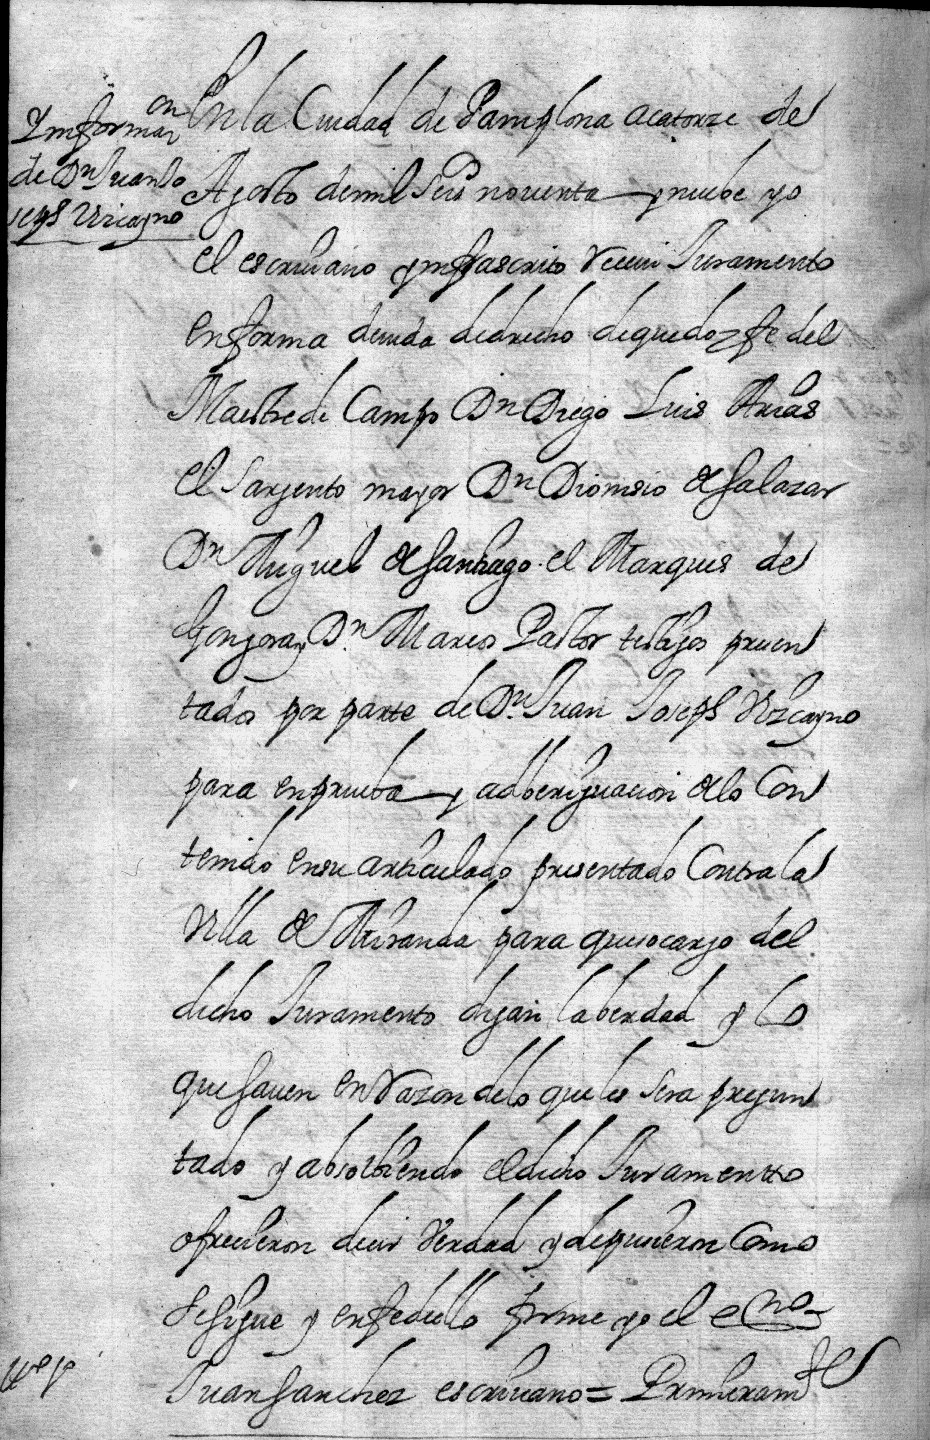 Ynforman on
de Dn Juan Jo
seph Vizcayno
En la Ciudad de Pamplona acatorze de
Agosto demil Seis noventa y nuebe yo
el escriuano ynfrascrito Reciui Juramento
enforma deuida dedrecho dequedoy fe del
Maestre de Campo Dn Diego Luis Arias
el Sarjento mayor Dn Dionisio de Salazar
Dn Miguel de Santiago el Marques de
Gongora y Dn Marcos Pastor testigos pressen
tados por parte de Dn Juan Joseph Vizcayno
para enprueba y adberiguacion delo Con
tenido ensu articulado presentado Contra la
Villa de Miranda para que socargo del
dicho Juramento digan la berdad y lo
que sauen en Razon delo que les sera pregun
tado y absolbiendo el dicho Juramento
ofrecieron decir Verdad y depusieron Como
se sigue y enfe dello firme yo el esno
Juan Sanchez escriuano = Primeramte